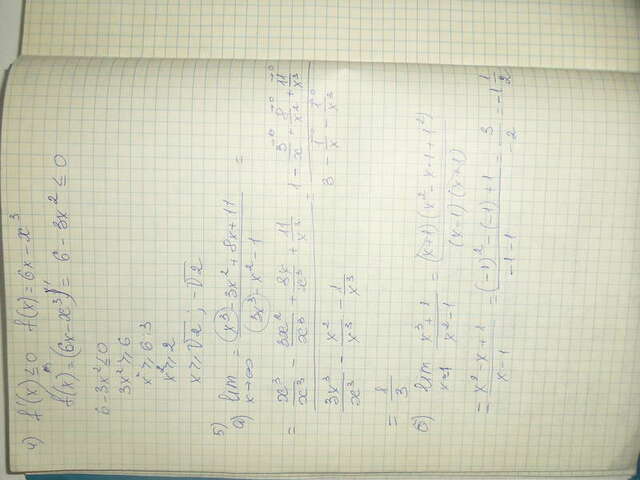 4) f'(x) ≤ 0 f(x) = 6x - x³
f'(x) = (6x - x³)' = 6 - 3x² ≤ 0
6 - 3x² ≤ 0
3x² ≥ 6
x² ≥ 6:3
x² ≥ 2
x ≥ √2 ; -√2
5)
a) lim x→∞ = (x³ - 3x² + 8x + 11)/(3x³ - x² - 1) =
= (x³/x³ - 3x²/x³ + 8x/x³ + 11/x³)/(3x³/x³ - x²/x³ - 1/x³) = (1 - 3/x→0 + 8/x²→0 + 11/x³→0)/(3 - 1/x→0 - 1/x³→0)
= 1/3
б) lim x→1 (x³ + 1)/(x² - 1) = (x+1)(x² - x·1 + 1²)/(x-1)(x+1)
= (x² - x + 1)/(x - 1) = ((-1)² - (-1) + 1)/(-1 - 1) = 3/-2 = -1 1/2